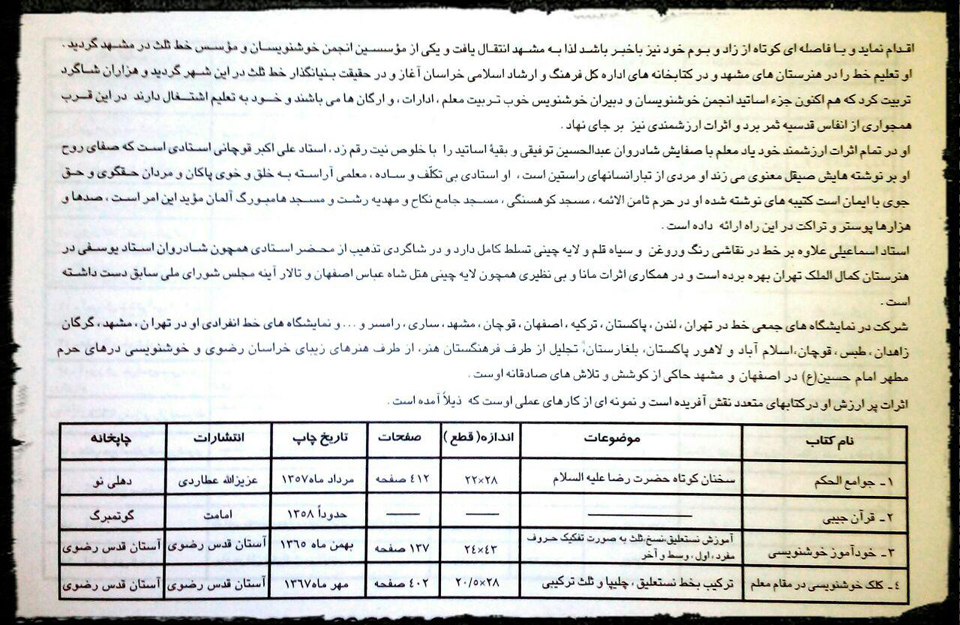 اقدام نماید و با فاصله ای کوتاه از زاد و بوم خود نیز باخبر باشد لذا به مشهد انتقال یافت و یکی از مؤسسین انجمن خوشنویسان و مؤسس خط ثلث در مشهد گردید .
او تعلیم خط را در هنرستان های مشهد و در کتابخانه های اداره کل فرهنگ و ارشاد اسلامی خراسان آغاز و در حقیقت بنیانگذار خط ثلث در این شهر گردید و هزاران شاگرد
تربیت کرد که هم اکنون جزء اساتید انجمن خوشنویسان و دبیران خوشنویس خوب تربیت معلم ، ادارات ، و ارگان ها می باشند و خود به تعلیم اشتغال دارند در این قرب
همجواری از انفاس قدسیه ثمر برد و اثرات ارزشمندی نیز بر جای نهاد .
او در تمام اثرات ارزشمند خود یاد معلم با صفایش شادروان عبدالحسین توفیقی و بقیۀ اساتید را با خلوص نیت رقم زد ، استاد علی اکبر قوچانی استادی است که صفای روح
او بر نوشته هایش صیقل معنوی می زند او مردی از تبار انسانهای راستین است ، او استادی بی تکلّف و ساده ، معلمی آراسته به خلق و خوی پاکان و مردان حقگوی و حق
جوی با ایمان است کتیبه های نوشته شده او در حرم ثامن الائمه ، مسجد کوهسنگی ، مسجد جامع نکاح و مهدیه رشت و مسجد هامبورگ آلمان مؤید این امر است ، صدها و
هزارها پوستر و تراکت در این راه ارائه داده است .
استاد اسماعیلی علاوه بر خط در نقاشی رنگ و روغن و سیاه قلم و لایه چینی تسلط کامل دارد و در شاگردی تذهیب از محضر استادی همچون شادروان استاد یوسفی در
هنرستان کمال الملک تهران بهره برده است و در همکاری اثرات مانا و بی نظیری همچون لایه چینی هتل شاه عباس اصفهان و تالار آینه مجلس شورای ملی سابق دست داشته
است .
شرکت در نمایشگاه های جمعی خط در تهران ، لندن ، پاکستان ، ترکیه ، اصفهان ، قوچان ، مشهد ، ساری ، رامسر و ... و نمایشگاه های خط انفرادی او در تهران ، مشهد ، گرگان
زاهدان ، طبس ، قوچان،اسلام آباد و لاهور پاکستان، بلغارستان، تجلیل از طرف فرهنگستان هنر، از طرف هنرهای زیبای خراسان رضوی و خوشنویسی درهای حرم
مطهر امام حسین(ع) در اصفهان و مشهد حاکی از کوشش و تلاش های صادقانه اوست .
اثرات پر ارزش او در کتابهای متعدد نقش آفریده است و نمونه ای از کارهای عملی اوست که ذیلاً آمده است .
نام کتاب موضوعات اندازه( قطع ) صفحات تاریخ چاپ انتشارات چاپخانه
۱- جوامع الحکم سخنان کوتاه حضرت رضا علیه السلام ۲۲×۲۸ ٤۱۲ صفحه مرداد ماه ۱۳۵۷ عزیزالله عطاردی دهلی نو
۲- قرآن جیبی حدوداً ۱۳۵۸ امامت گوتمبرگ
۳- خودآموز خوشنویسی آموزش نستعلیق،نسخ،ثلث به صورت تفکیک حروف
مفرد ، اول ، وسط و آخر ۲٤×٤۳ ۱۳۷ صفحه بهمن ماه ۱۳٦۵ آستان قدس رضوی آستان قدس رضوی
٤- کلک خوشنویسی در مقام معلم ترکیب بخط نستعلیق ، چلیپا و ثلث ترکیبی ۲۰/۵×۲۸ ٤۰۲ صفحه مهر ماه ۱۳٦۷ آستان قدس رضوی آستان قدس رضوی